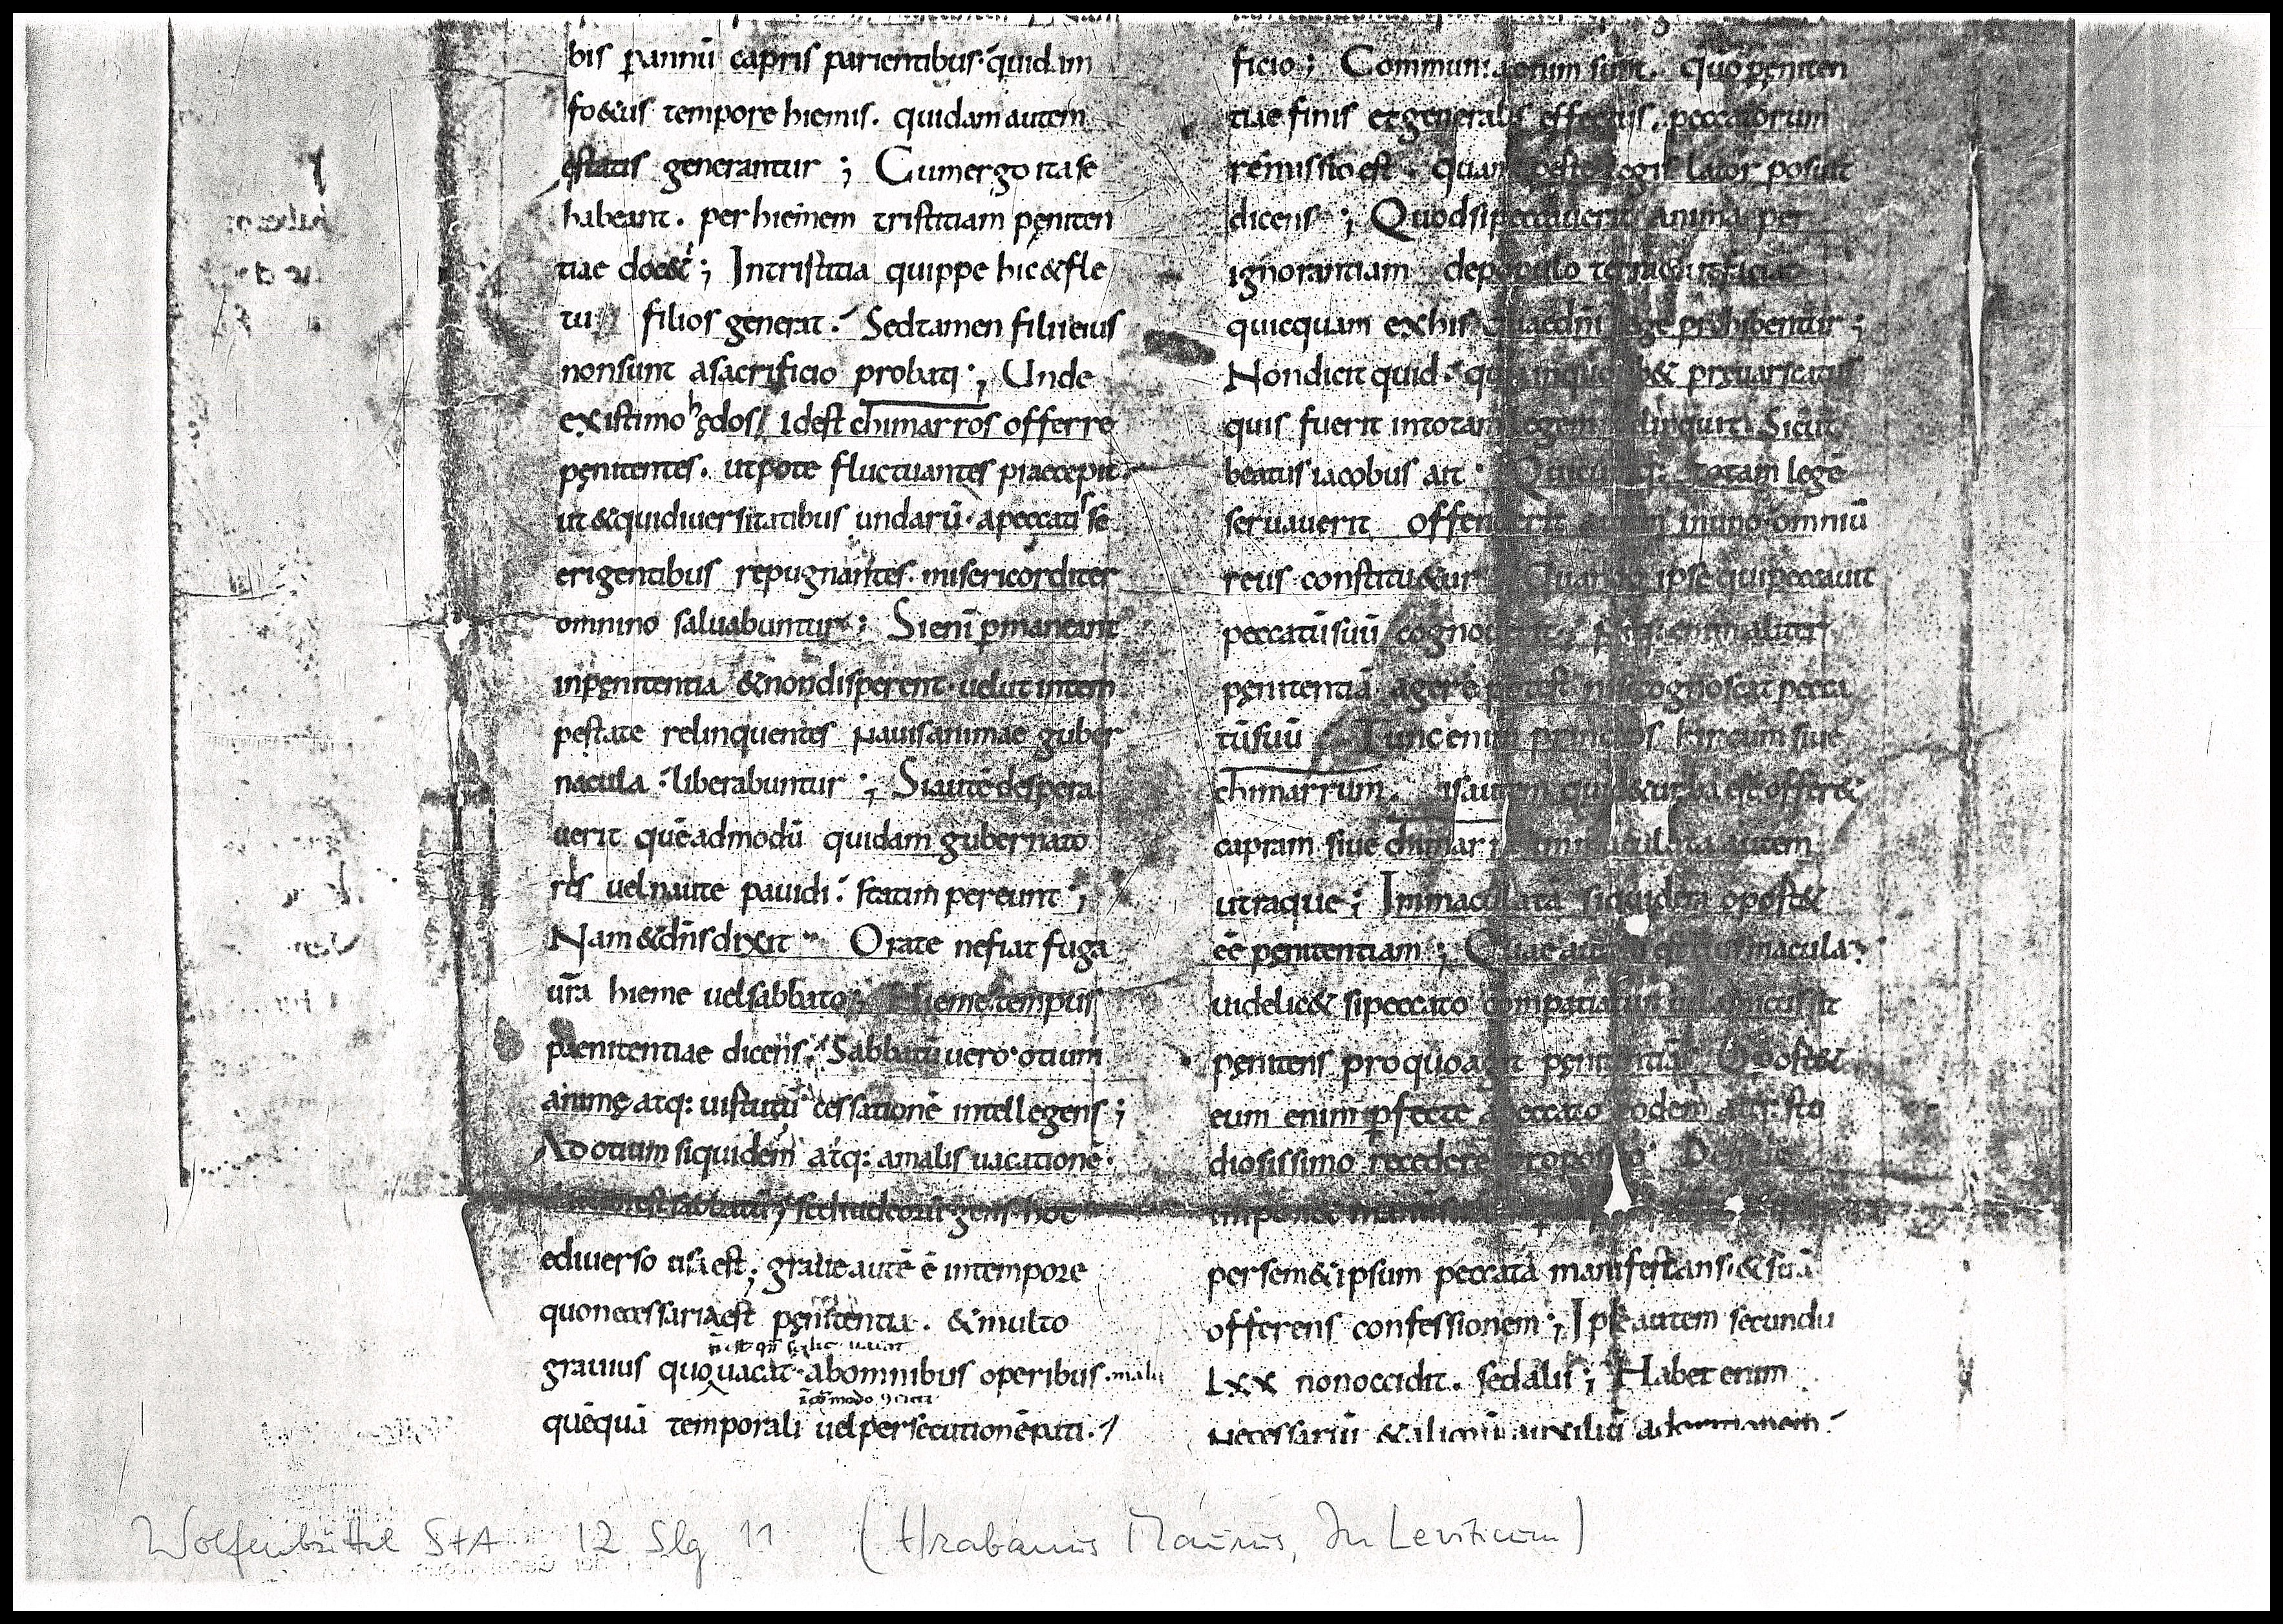 bis pannū capris parientibus· quidam
fo&us tempore hiemis. quidam autem
ęstatis generantur ; Cum ergo ita se
habeant. per hiemem tristitiam pęniten
tiae doc& ; In tristitia quippe hic & fle
tu filios generat. Sed tamen filii eius
non sunt a sacrificio probati ; Unde
existimo hędos / id est chimarros offerre
pęnitentes. utpote fluctuantes praecepit.
ut & qui diuersitatibus undarū· a peccatis se
erigentibus repugnantes· misericorditer
omnino saluabuntur ; Si enī pmaneant
in pęnitentia & non disperent· uelut in tem
pestate relinquentes nauis animae guber
nacula · liberabuntur ; Si autē despera
uerit quēadmodū quidam gubernato
res uel naute pauidi· statim pereunt ;
Nam & dn̄s dixit Orate ne fiat fuga
ūra hieme uel sabbato ; Hieme tempus
paenitentiae dicens· Sabbatū uero· otium
animę atq: uirtutū cessationē intellegens ;
Ad otium siquidem atq: a malis uacationē·
sabbatū sed iudeorū gens hoc
e diuerso usa est ; graue autē ē in tempore
quo necessaria est pęnitentia. & multo
grauius quo uacat· ab omnibus operibus· malis
quēquā temporali uel persecutionē pati·
ficio ; Communi autem sunt. Quo pęniten
tiae finis et generalis effectus· peccatorum
remissio est · quam legis lator posuit
dicens ; Quod si peccauerit anima per
ignorantiam de populo terrae ut faciat
quicquam ex his quae dn̄i lege prohibentur ;
Non dicit quid · & pręuaricatus
quis fuerit in totam legem delinquit Sicut
beatus iacobus ait · Quicūq: totam legē
seruauerit offenderit autem in uno· omniū
reus constitu&ur Quando ipse qui peccauit
peccatū suū cognouerit ; aliter
pęnitentiā agere potest nisi cognoscat pecca
tū suū Tunc enim princeps hircum siue
chimarrum. is autem qui & turba est offer&
capram siue chimarram immaculata autem
utraque ; Immaculatā siquidem oport&
eē pęnitentiam ; Quae autem est macula·
uidelic& si peccato compatiatur sit
pęnitens pro quo agit pęnitentiā Oport&
eum enim pfecte a peccato eodem atq: stu
diosissimo recedere proposito Deinde
inpon& manū
per sem&ipsum peccata manifestans· & suā
offerens confessionem ; Ipse autem secundū
LXX non occidit. sed alii ; Habet enim
necessariū & aliquū auxiliū ad
Wolfenbüttel StA 12 Slg 11 (Hrabanus Maurus, In Leviticum)